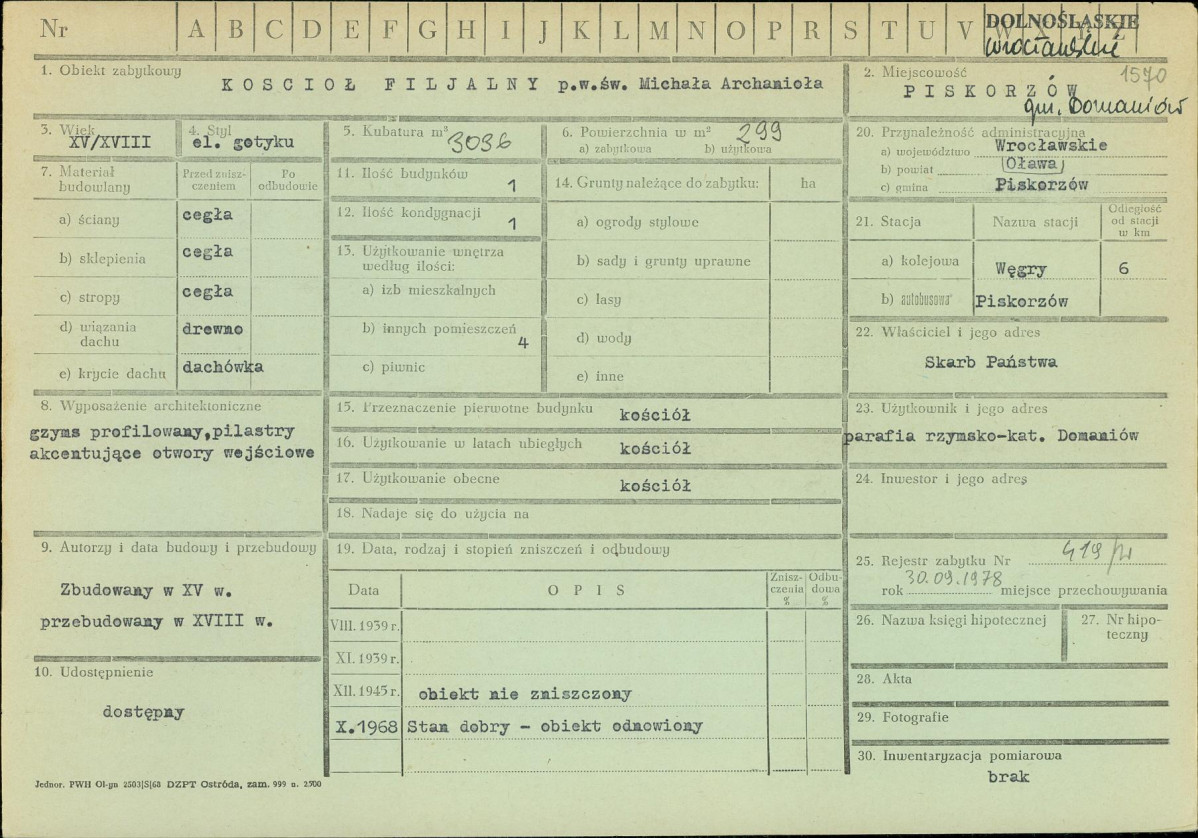 Nr A B C D E F G H I J K L M N O P R S T U V W X Y Z
DOLNOŚLĄSKIE
wrocławskie
1. Obiekt zabytkowy
KOSCIOŁ FILJALNY p.w.św. Michała Archanioła
2. Miejscowość
1570
PISKORZÓW
gm. Domaniów
3. Wiek
XV/XVIII
4. Styl
el. gotyku
5. Kubatura m³ 3036
6. Powierzchnia w m² 299
a) zabytkowa b) użytkowa
7. Materiał budowlany
Przed znisz-
czeniem
Po
odbudowie
a) ściany cegła
b) sklepienia cegła
c) stropy cegła
d) wiązania
dachu drewno
e) krycie dachu dachówka
8. Wyposażenie architektoniczne
gzyms profilowany,pilastry
akcentujące otwory wejściowe
9. Autorzy i data budowy i przebudowy
Zbudowany w XV w.
przebudowany w XVIII w.
10. Udostępnienie
dostępny
11. Ilość budynków 1
12. Ilość kondygnacji 1
13. Użytkowanie wnętrza
według ilości:
a) izb mieszkalnych
b) innych pomieszczeń 4
c) piwnic
14. Grunty należące do zabytku: ha
a) ogrody stylowe
b) sady i grunty uprawne
c) lasy
d) wody
e) inne
15. Przeznaczenie pierwotne budynku kościół
16. Użytkowanie w latach ubiegłych kościół
17. Użytkowanie obecne kościół
18. Nadaje się do użycia na
19. Data, rodzaj i stopień zniszczeń i odbudowy
Data OPIS Znisz-
czenia
% Odbu-
dowa
%
VIII. 1939 r.
XI. 1939 r.
XII. 1945 r. obiekt nie zniszczony
X.1968 Stan dobry - obiekt odnowiony
20. Przynależność administracyjna
a) województwo Wrocławskie
b) powiat Oława
c) gmina Piskorzów
21. Stacja Nazwa stacji Odległość
od stacji
w km
a) kolejowa Węgry 6
b) autobusowa Piskorzów
22. Właściciel i jego adres
Skarb Państwa
23. Użytkownik i jego adres
parafia rzymsko-kat. Domaniów
24. Inwestor i jego adres
25. Rejestr zabytku Nr 419/W
30.09.1978
rok miejsce przechowywania
26. Nazwa księgi hipotecznej
27. Nr hipo-
teczny
28. Akta
29. Fotografie
30. Inwentaryzacja pomiarowa
brak
Jednor. PWH Ol-yn 2503|S|68 DZPT Ostróda, zam. 999 n. 2500